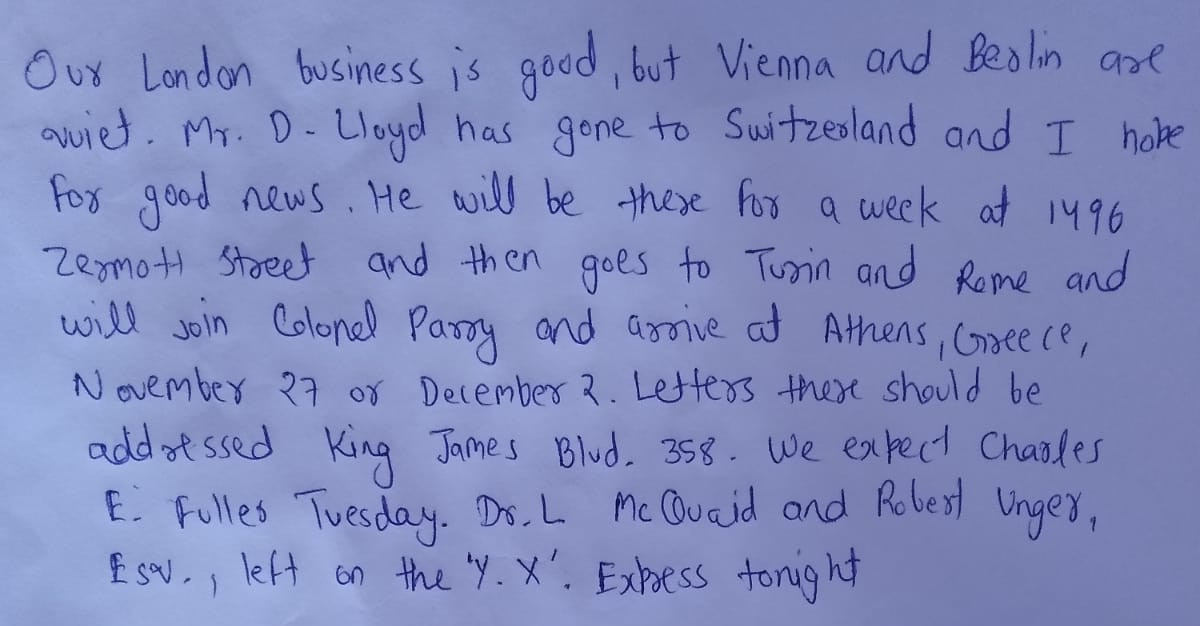 Our London business is good, but Vienna and Berlin are
quiet. Mr. D. Lloyd has gone to Switzerland and I hope
for good news. He will be there for a week at 1496
Zermott Street and then goes to Turin and Rome and
will join Colonel Parry and arrive at Athens, Greece,
November 27 or December 2. Letters there should be
addressed King James Blvd. 358. We expect Charles
E. Fuller Tuesday. Dr. L McQuaid and Robert Unger,
Esq., left on the 'Y. X'. Express tonight